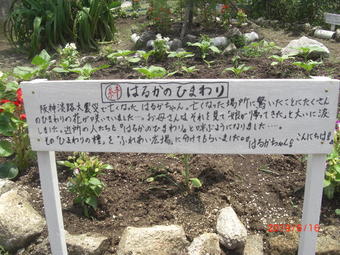 はるかのひまわり
阪神淡路大震災で亡くなった はるかちゃん。亡くなった場所に驚いたことにたくさん
のひまわりの花が咲いていました…。お母さんはそれを見て「娘が帰ってきた」と大いに涙
しました。近所の人たちも『はるかのひまわり』と呼ぶようになりました…。
その「ひまわりの種」を、ふれあい広場に分けてもらいました。 こんにちは!!
はるかちゃん!!